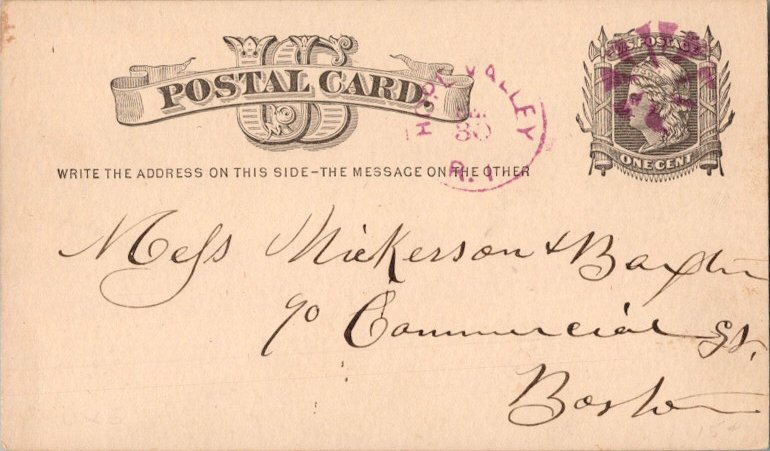 US
POSTAL CARD.
U.S. POSTAGE
ONE CENT
HOPE VALLEY
30
R.I
WRITE THE ADDRESS ON THIS SIDE–THE MESSAGE ON THE OTHER
Mess Nickerson & Baxter
90 Commercial St.
Boston